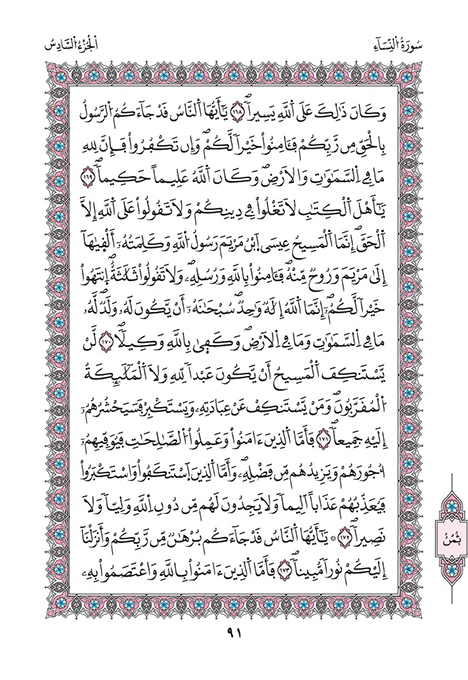 سُورَةُ النِّسَاءِ
الْجُزْءُ السَّادِسُ
وَكَانَ ذَٰلِكَ عَلَى اَللَّهِ يَسِيراًۖ ١٦٨ يَٰأَيُّهَا اَلنَّاسُ قَدْ جَآءَكُمُ اُلرَّسُولُ
بِالْحَقِّ مِن رَّبِّكُمْ فَـَٔامِنُواْ خَيْراً لَّكُمْۖ وَإِن تَكْفُرُواْ فَإِنَّ لِلهِ
مَا فِے اِلسَّمَٰوَٰتِ وَالَارْضِۖ وَكَانَ اَللَّهُ عَلِيماً حَكِيماًۖ ١٦٩
يَٰأَهْلَ اَلْكِتَٰبِ لَا تَغْلُواْ فِے دِينِكُمْ وَلَا تَقُولُواْ عَلَى اَللَّهِ إِلَّا
اَلْحَقَّۖ إِنَّمَا اَلْمَسِيحُ عِيسَى اَبْنُ مَرْيَمَ رَسُولُ اُللَّهِ وَكَلِمَتُهُۥٓ أَلْقَيٰهَآ
إِلَىٰ مَرْيَمَ وَرُوحٌ مِّنْهُۖ فَـَٔامِنُواْ بِاللَّهِ وَرُسُلِهِۦۖ وَلَا تَقُولُواْ ثَلَٰثَةٌۖ اِنتَهُواْ
خَيْراً لَّكُمْۖ إِنَّمَا اَللَّهُ إِلَٰهٌ وَٰحِدٌۖ سُبْحَٰنَهُۥٓ أَنْ يَّكُونَ لَهُۥ وَلَدٌۖ لَّهُۥ
مَا فِے اِلسَّمَٰوَٰتِ وَمَا فِے اِلَارْضِۖ وَكَفَىٰ بِاللَّهِ وَكِيلاًۖ ١٧٠ لَّنْ
يَّسْتَنكِفَ اَلْمَسِيحُ أَنْ يَّكُونَ عَبْداً لِلهِ وَلَا اَلْمَلَٰٓئِكَةُ
اُلْمُقَرَّبُونَۖ وَمَنْ يَّسْتَنكِفْ عَنْ عِبَادَتِهِۦ وَيَسْتَكْبِرْ فَسَيَحْشُرُهُمُۥٓ
إِلَيْهِ جَمِيعاًۖ ١٧١ فَأَمَّا اَلذِينَ ءَامَنُواْ وَعَمِلُواْ اُلصَّٰلِحَٰتِ فَيُوَفِّيهِمُۥٓ
أُجُورَهُمْ وَيَزِيدُهُم مِّن فَضْلِهِۦۖ وَأَمَّا اَلذِينَ اَسْتَنكَفُواْ وَاسْتَكْبَرُواْ
فَيُعَذِّبُهُمْ عَذَاباً اَلِيماً وَلَا يَجِدُونَ لَهُم مِّن دُونِ اِللَّهِ وَلِيّاً وَلَا
نَصِيراًۖ ١٧٢ يَٰأَيُّهَا اَلنَّاسُ قَدْ جَآءَكُم بُرْهَٰنٌ مِّن رَّبِّكُمْ وَأَنزَلْنَآ
إِلَيْكُمْ نُوراً مُّبِيناًۖ ١٧٣ فَأَمَّا اَلذِينَ ءَامَنُواْ بِاللَّهِ وَاعْتَصَمُواْ بِهِۦ
ثُمُنُ
٩١